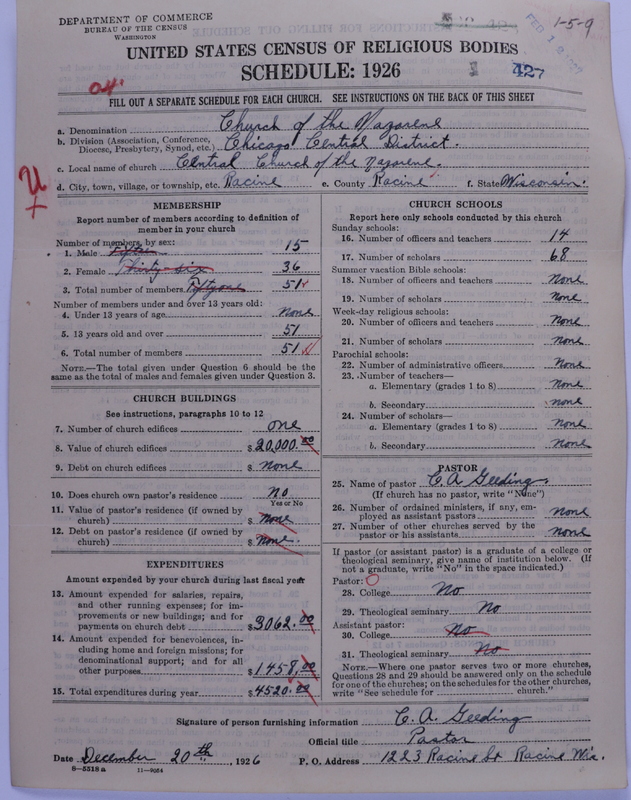 DEPARTMENT OF COMMERCE
BUREAU OF THE CENSUS
WASHINGTON
1-5-9
UNITED STATES CENSUS OF RELIGIOUS BODIES
SCHEDULE: 1926
427
04
FILL OUT A SEPARATE SCHEDULE FOR EACH CHURCH. SEE INSTRUCTIONS ON THE BACK OF THIS SHEET
a. Denomination Church of the Nazarene
b. Division (Association, Conference, Diocese, Presbytery, Synod, etc.) Chicago Central District.
c. Local name of church Central Church of the Nazarene.
d. City, town, village, or township, etc. Racine e. County Racine f. State Wisconsin.
MEMBERSHIP
Report number of members according to definition of
member in your church
Number of members, by sex:
1. Male Fifteen 15
2. Female Thirty-six 36
3. Total number of members Fiftyone 51
Number of members under and over 13 years old:
4. Under 13 years of age None
5. 13 years old and over 51
6. Total number of members 51
NOTE.—The total given under Question 6 should be
same as the total of males and females given under Question 3.
CHURCH BUILDINGS
See instructions, paragraphs 10 to 12
7. Number of church edifices one
8. Value of church edifices $20,000.00
9. Debt on church edifices $ None
10. Does church own pastor's residence No
Yes or No
11. Value of pastor's residence (if owned by
church) $ None
12. Debt on pastor's residence (if owned by
church) $ None.
EXPENDITURES
Amount expended by your church during last fiscal year
13. Amount expended for salaries, repairs,
and other running expenses; for im-
provements or new buildings; and for
payments on church debt $3062.00
14. Amount expended for benevolences, in-
cluding home and foreign missions; for
denominational support; and for all
other purposes $1458.00
15. Total expenditures during year $4520.00
CHURCH SCHOOLS
Report here only schools conducted by this church
Sunday schools:
16. Number of officers and teachers 14
17. Number of scholars 68
Summer vacation Bible schools:
18. Number of officers and teachers None
19. Number of scholars None
Week-day religious schools:
20. Number of officers and teachers None
21. Number of scholars None
Parochial schools:
22. Number of administrative officers None
23. Number of teachers—
a. Elementary (grades 1 to 8) None
b. Secondary None
24. Number of scholars—
a. Elementary (grades 1 to 8) None
b. Secondary None
PASTOR
25. Name of pastor C. A. Geeding
(If church has no pastor, write "None")
26. Number of ordained ministers, if any, em-
ployed as assistant pastors None
27. Number of other churches served by the
pastor or his assistants None
If pastor (or assistant pastor) is a graduate of a college or
theological seminary, give name of institution below. (If
not a graduate, write "No" in the space indicated.)
Pastor:
28. College No
29. Theological seminary No
Assistant pastor:
30. College No
31. Theological seminary No
NOTE.—Where one pastor serves two or more churches,
Questions 28 and 29 should be answered only on the schedule
for one of the churches; on the schedules for the other churches,
write "See schedule for church."
Signature of person furnishing information C. A. Geeding
Official title Pastor
Date December 20th, 1926 P. O. Address 1223 Racine St Racine Wis.
8—5518 a 11—9054